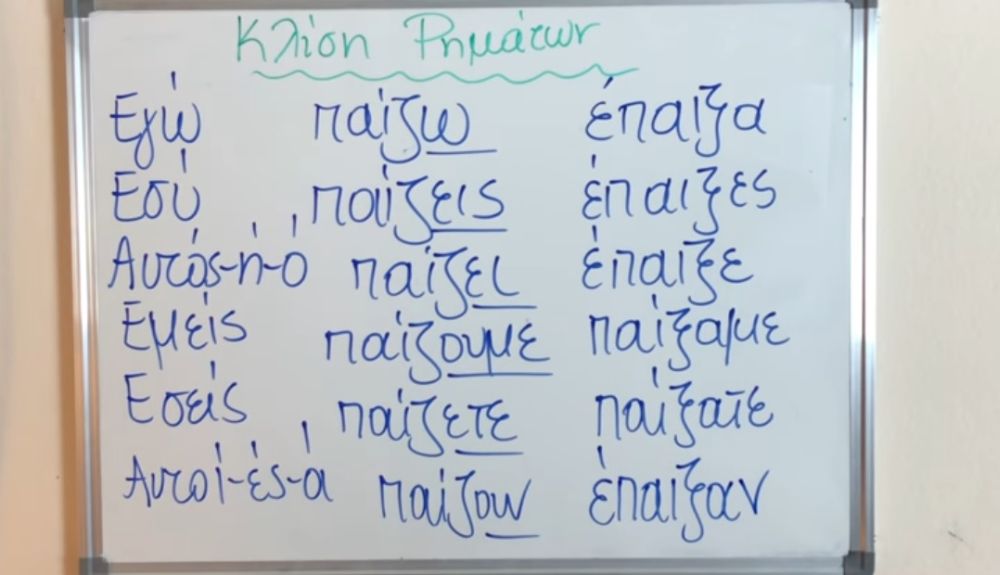 Κλίση Ρημάτων
Εγώ παίζω έπαιξα
Εσύ παίζεις έπαιξες
Αυτός-ή-ό παίζει έπαιξε
Εμείς παίζουμε παίξαμε
Εσείς παίζετε παίξατε
Αυτοί-ές-ά παίζουν έπαιξαν